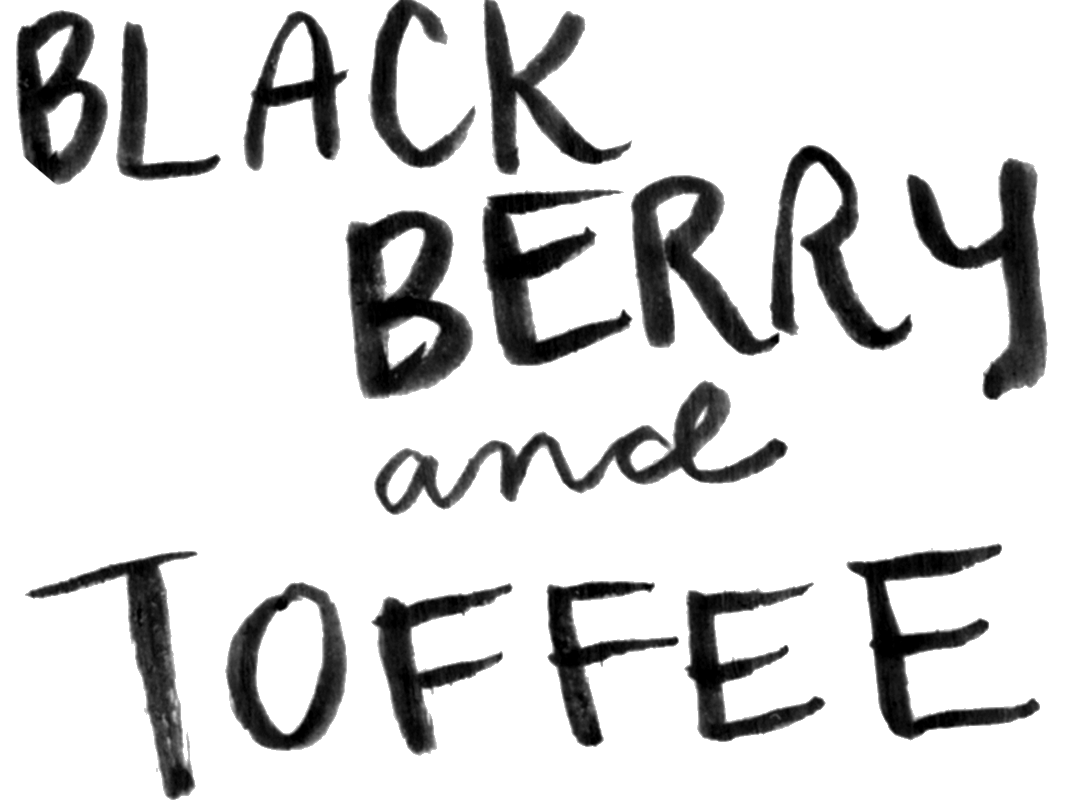 BLACK
BERRY
and
TOFFEE